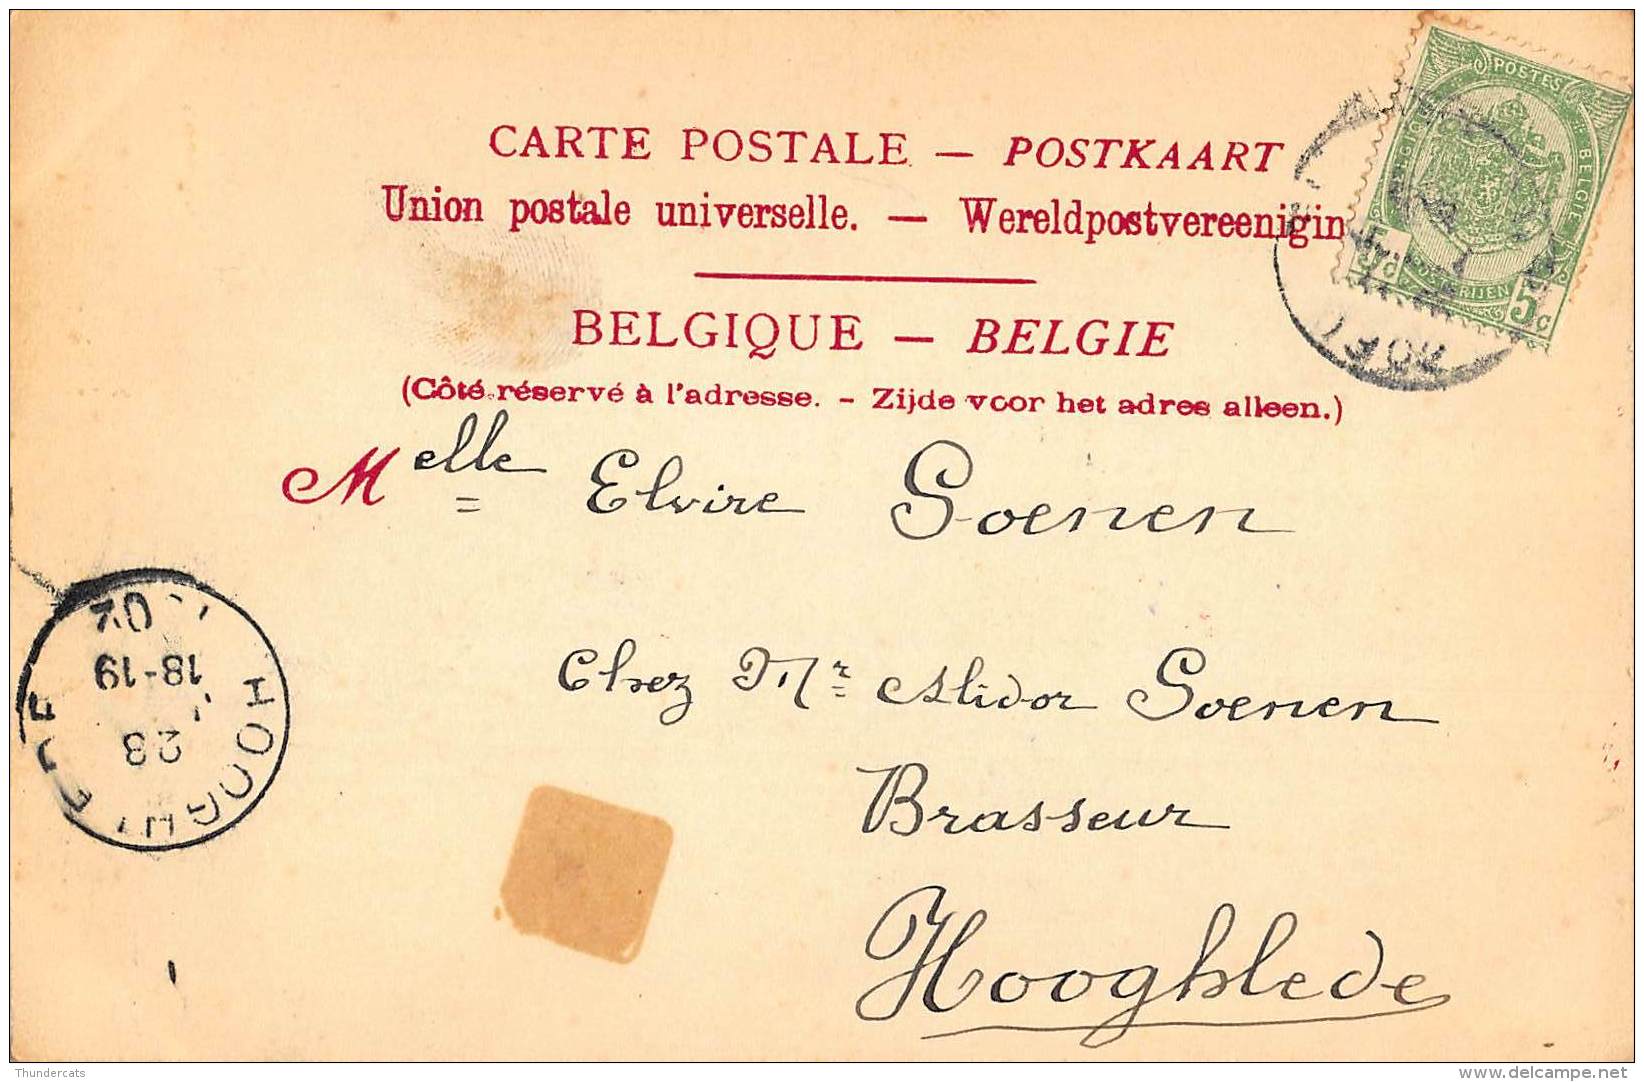 CARTE POSTALE — POSTKAART
Union postale universelle. — Wereldpostvereenigin
BELGIQUE — BELGIE
(Côté réservé à l'adresse. - Zijde voor het adres alleen.)
Melle Elvire Soenen
Chez Mr Alidor Soenen
Brasseur
Hooghlede
POSTES
BELGIQUE
BELGIE
5c
5c
02
18-19
23
Thundercats
www.delcampe.net